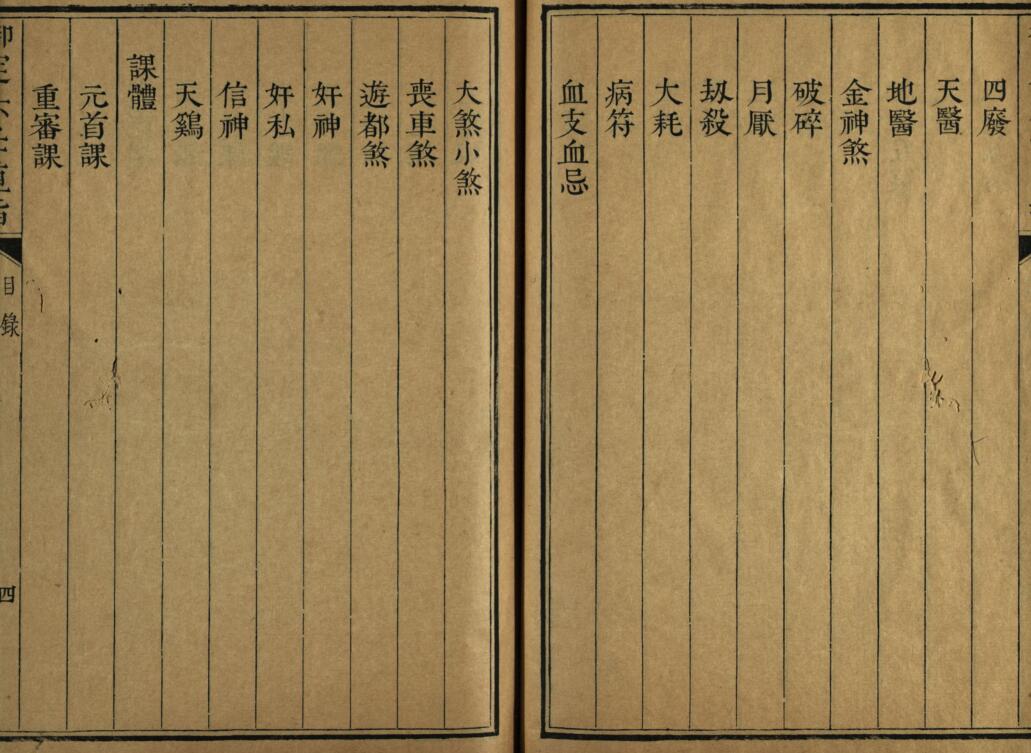 四廢
天醫
地醫
金神煞
破碎
月厭
刼殺
大耗
病符
血支血忌
大煞小煞
喪車煞
遊都煞
奸神
奸私
信神
天鷄
課體
元首課
重審課
目錄
四